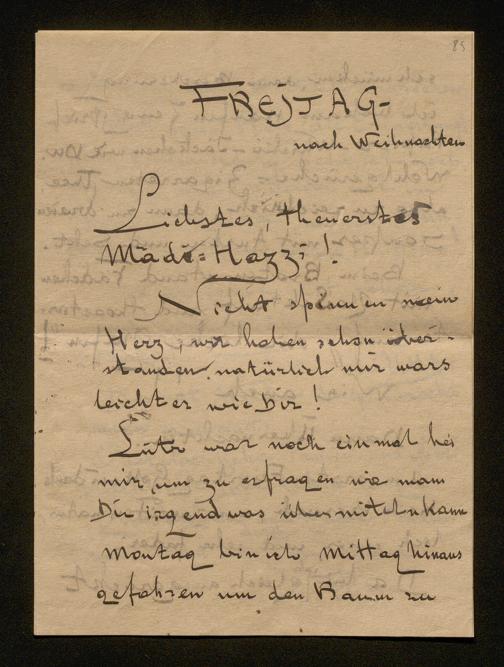 85
FREJTAG-
nach Weihnachten
Liebstes, theuerstes
Madi-Hazzi!
Nicht spinnen mein
Herz, wir haben schon über-
standen, natürlich mir wars
leichter wie Dir!
war noch einmal bei
mir, um zu erfragen wie man
Dir irgendwas übermitteln kann
Montag bin ich Mittag hinaus
gefahren um den Baum zu